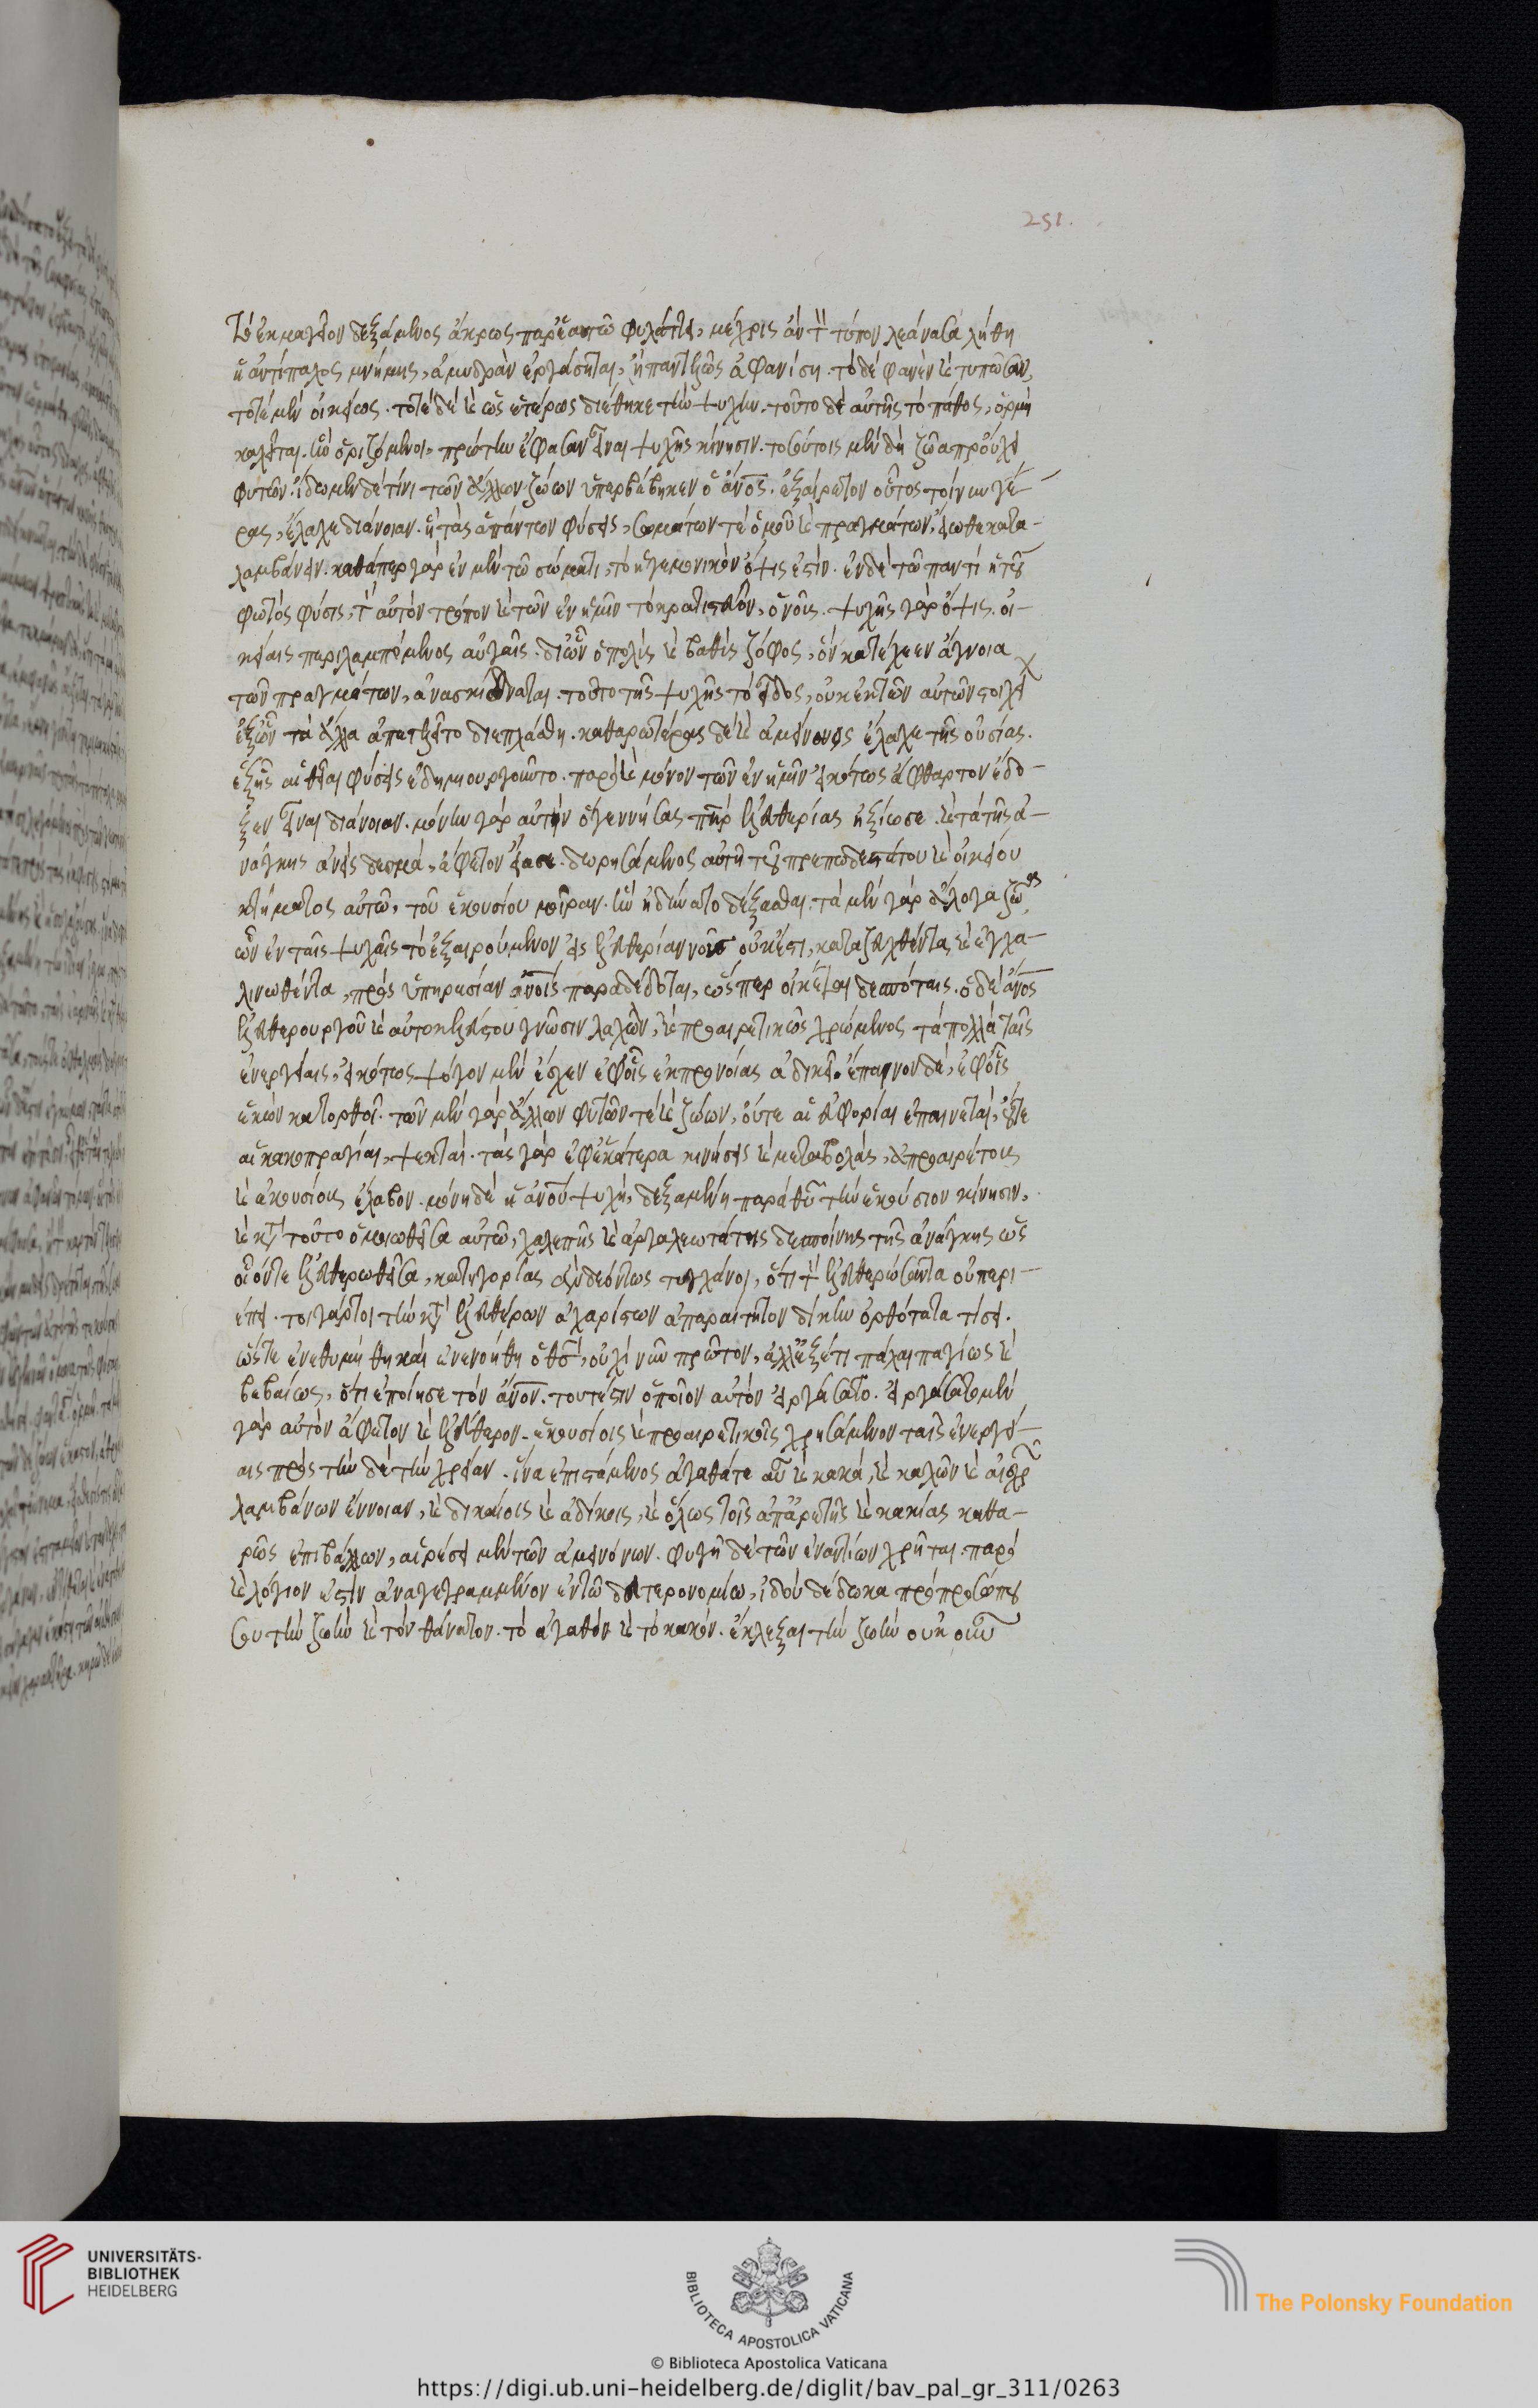 251.
τὸ ἐκμαγεῖον δεξάμενος ἄκρως παρ' ἑαυτῷ φυλάττει, μέχρις ἂν τὸν τύπον λεάνασα λήθη
ἡ ἀντίπαλος μνήμης, ἀμυδρὰν ἐργάσηται, ἢ παντελῶς ἀφανίση. τὸ δὲ φανὲν καὶ τυπῶσαν,
τοτὲ μὲν οἰκείως. τοτὲ δὲ καὶ ὡς ἑτέρως διέθηκε τὴν ψυχήν. τοῦτο δὲ αὐτῆς τὸ πάθος, ὁρμὴ
καλεῖται. ἣν ὁριζόμενοι, πρώτην ἔφασαν εἶναι ψυχῆς κίνησιν. τοσούτοις μὲν δὴ ζῶα προὔχει
φυτῶν. ἴδωμεν δὲ τίνι τῶν ἄλλων ζώων ὑπερβέβηκεν ὁ ἄνος. ἐξαίρετον οὗτος τοίνυν γέ-
ρας, ἔλαχε διάνοιαν. ἣ τὰς ἁπάντων φύσεις, σωμάτων τὲ ὁμοῦ καὶ πραγμάτων, εἴωθε κατα-
λαμβάνειν. καθάπερ γὰρ ἐν μὲν τῶ σώματι, τὸ ἡγεμονικὸν ὄψις ἐστίν. ἐν δὲ τῶ παντὶ ἡ τοῦ
φωτὸς φύσις, τὸν αὐτὸν τρόπον καὶ τῶν ἐν ἡμῖν τὸ κρατιστεῦον, ὁ νοῦς. ψυχῆς γὰρ ὄψις. οἰ-
κείαις περιλαμπόμενος αὐγαῖς. δι' ὧν ὁ πολὺς καὶ βαθὺς ζόφος, ὃν κατέχεεν ἄγνοια
τῶν πραγμάτων, ἀνασκίδναται. τοῦτο τῆς ψυχῆς τὸ εἶδος, οὐκ ἐκ τῶν αὐτῶν στοιχεί
ἐξ ὧν τὰ ἄλλα ἀπετελεῖτο διεπλάσθη. καθαρωτέρας δὲ καὶ ἀμείνονος ἔλαχε τῆς οὐσίας.
ἐξ ἧς αἱ θεῖαι φύσεις ἐδημιουργοῦντο. παρὸ καὶ μόνον τῶν ἐν ἡμῖν εἰκότως ἄφθαρτον ἔδο-
ξεν εἶναι διάνοιαν. μόνην γὰρ αὐτὴν ὁ γεννήσας πηρ ἐλευθερίας ἠξίωσε. καὶ τὰ τῆς ἀ-
νάγκης ἀνεὶς δεσμά, ἄφετον εἴασε. δωρησάμενος αὐτῆ τοῦ πρεπωδεστάτου καὶ οἰκείου
κτήματος αὐτῶ, τοῦ ἑκουσίου μοῖραν. ἣν ἠδύνατο δέξασθαι. τὰ μὲν γὰρ ἄλογα ζῶα
ὧν ἐν ταῖς ψυχαῖς τὸ ἐξαιρούμενον εἰς ἐλευθερίαν νοῦς οὐκ ἔστι, καταζευχθέντα καὶ ἐγχα-
λινωθέντα, πρὸς ὑπηρεσίαν ἀνοις παραδέδοται, ὥσπερ οἰκέται δεσπόταις. ὁ δὲ ἄνος
ἐλευθερουργοῦ καὶ αὐτοκελεύστου γνῶσιν λαχὼν, καὶ προαιρετικῶς χρώμενος τὰ πολλὰ ταῖς
ἐνεργείαις, εἰκότως ψόγον μὲν ἔσχεν ἐφ' οἷς ἐκ προνοίας ἀδικεῖ. ἔπαινον δὲ, ἐφ' οἷς
ἑκὼν κατορθοῖ. τῶν μὲν γὰρ ἄλλων φυτῶν τὲ καὶ ζώων, οὔτε αἱ εὐφορίαι ἐπαινεταί, οὔτε
αἱ κακοπραγίαι, ψεκταί. τὰς γὰρ ἐφ' ἑκάτερα κινήσεις καὶ μεταβολάς, ἀπροαιρέτους
καὶ ἀκουσίους ἔλαβον. μόνη δὲ ἡ ἀνου ψυχὴ, δεξαμένη παρὰ θεοῦ τὴν ἑκούσιον κίνησιν,
καὶ κατὰ τοῦτο ὁμοιωθεῖσα αὐτῶ, χαλεπῆς καὶ ἀργαλεωτάτης δεσποίνης τῆς ἀνάγκης ὡς
οἷόν τε ἐλευθερωθεῖσα, κατηγορίας ἂν δεόντως τυγχάνοι, ὅτι τὸν ἐλευθερώσαντα οὐ περι-
έπει. τοιγάρτοι τὴν κατὰ ἐλευθέρων ἀχαρίστων ἀπαραίτητον δίκην ὀρθότατα τίσει.
ὥστε ἐνεθυμήθη καὶ ἐνενοήθη ὁ θς, οὐχὶ νῦν πρῶτον, ἀλλ' ἐξέτι πάλαι παγίως καὶ
βεβαίως, ὅτι ἐποίησε τὸν ἄνον. τουτέστιν ὁποῖον αὐτὸν εἰργάσατο. εἰργάσατο μὲν
γὰρ αὐτὸν ἄφετον καὶ ἐλεύθερον. ἑκουσίοις καὶ προαιρετικοῖς χρησάμενον ταῖς ἐνεργεί-
αις πρὸς τὴν δὲ τὴν χρείαν. ἵνα ἐπιστάμενος ἀγαθά τε αὖ καὶ κακά, καὶ καλῶν καὶ αἰσχρῶν
λαμβάνων ἔννοιαν, καὶ δικαίοις καὶ ἀδίκοις, καὶ ὅλως τοῖς ἀπ' ἀρετῆς καὶ κακίας καθα-
ρῶς ἐπιβάλλων, αἱρέσει μὲν τῶν ἀμεινόνων. φυγῆ δὲ τῶν ἐναντίων χρῆται. παρὸ
καὶ λόγιον ἐστὶν ἀναγεγραμμένον ἐν τῶ δευτερονομίω, ἰδοὺ δέδωκα πρὸ προσώπου
σου τὴν ζωὴν καὶ τὸν θάνατον. τὸ ἀγαθὸν καὶ τὸ κακόν. ἔκλεξαι τὴν ζωὴν οὐκοῦν
UNIVERSITÄTS-
BIBLIOTHEK
HEIDELBERG
BIBLIOTECA APOSTOLICA VATICANA
The Polonsky Foundation
© Biblioteca Apostolica Vaticana
https://digi.ub.uni-heidelberg.de/diglit/bav_pal_gr_311/0263